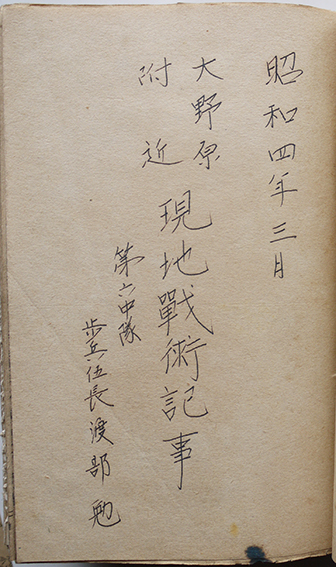 昭和四年三月
大野原
附近
現地戰術記事
第六中隊
歩兵伍長渡部勉